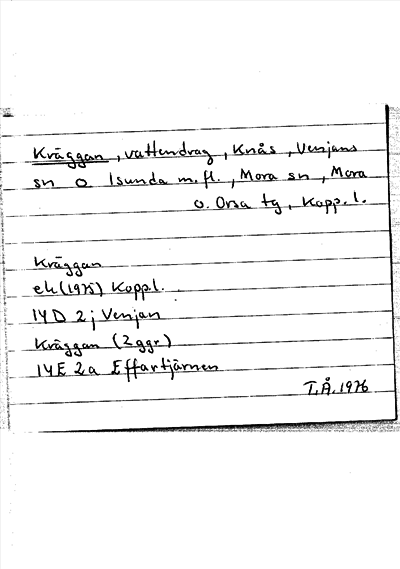 Kräggan, vattendrag, Knås, Venjans
sn o Isunda m.fl., Mora sn, Mora
o. Orsa tg, Kopp.l.
Kräggan
ek(1975) Koppl.
14D 2j Venjan
Kräggan (2 ggr)
14E 2a Effartjärnen
T.Å. 1976